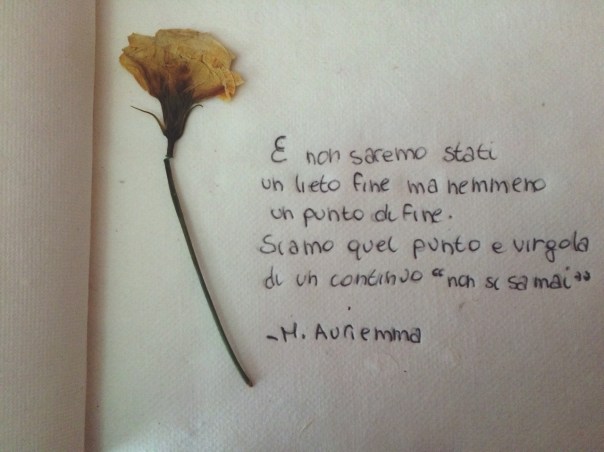 E non saremo stati
un lieto fine ma nemmeno
un punto di fine.
Siamo quel punto e virgola
di un continuo "non si sa mai"
-M. Auriemma